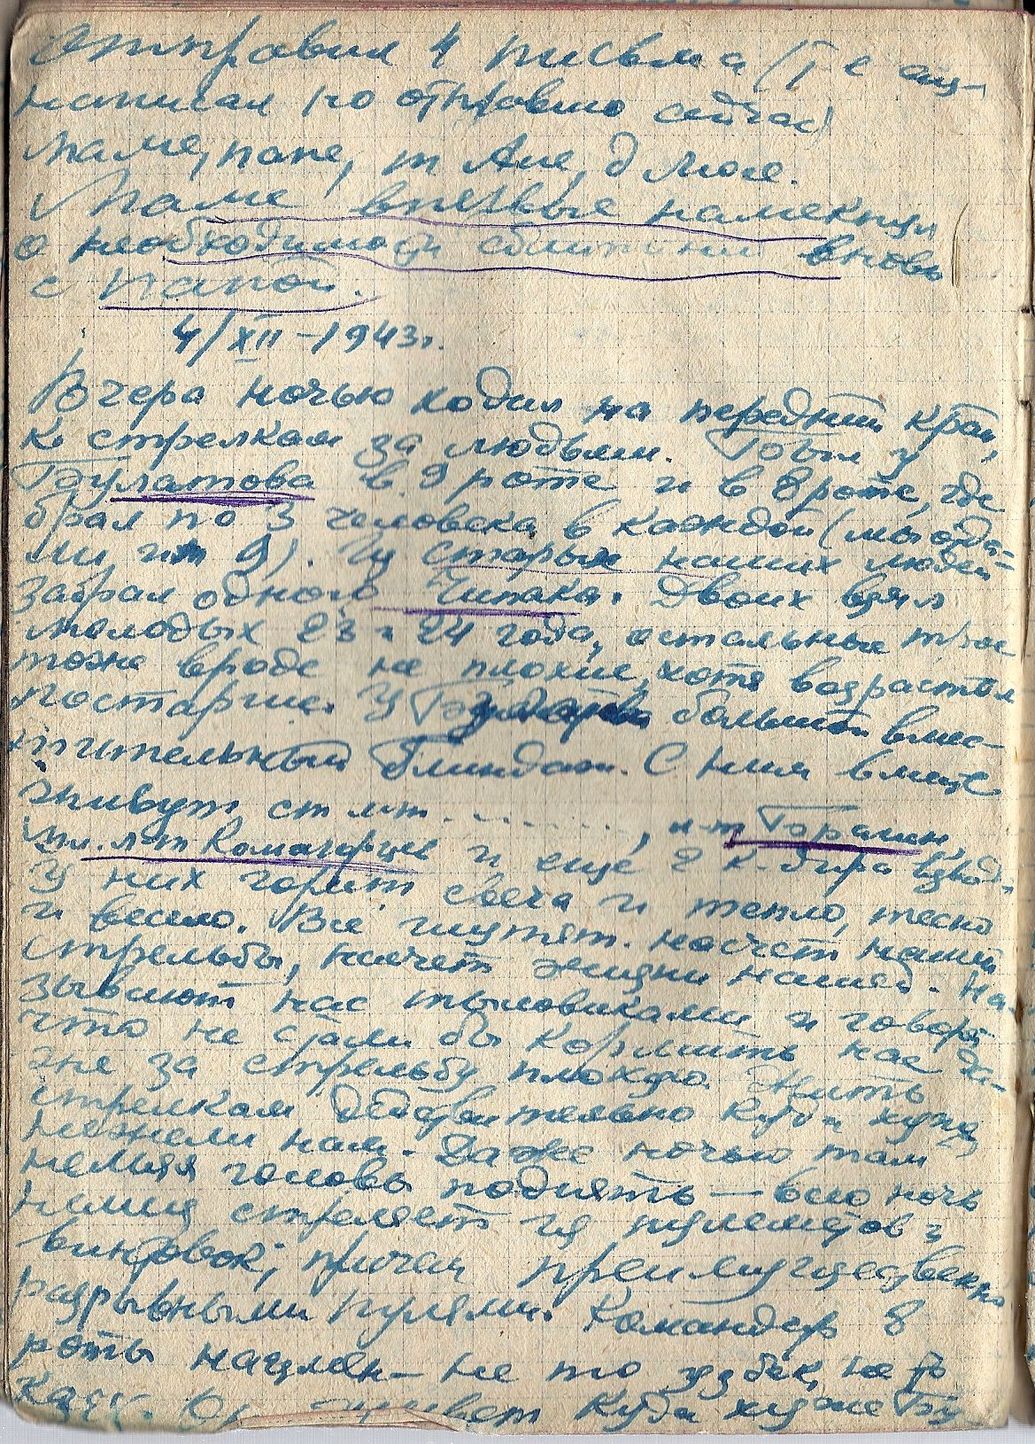 отправил 4 письма (Т е ещ-
написал но отправлю сейчас)
маме, папе, т Ане, д Мосе.
Маме впервые намекнул
о необходимости сближения вновь
с папой.
4/XII-1943г.
Вчера ночью ходил на передний край,
к стрелкам за людьми. Был у
Булатова в 9 роте и в 8 роте, где
брал по 3 человека в каждой (мы отда-
ли им 9). Из старых наших людей
забрал одного Чипака. Двоих взял
молодых 23 и 24 года, остальные трое
тоже вроде не плохие, хотя возрастом
постарше. У Булатова большой вмес-
тительный блиндаж. С ним вместе
живут ст л-т ........., л-т Бралин,
мл. л-т Комагорцев и еще 2 к-дира взвод.
У них горит свеча и тепло, тесно
и весело. Все шутят насчет нашей
стрельбы, насчет жизни нашей. На-
зывают нас тыловиками и говорят
что не стали бы кормить нас да-
же за стрельбу плохую. Жить
стрелкам действительно куда хуже,
нежели нам. Даже ночью там
нельзя головы поднять — всю ночь
немец стреляет из пулеметов и
винтовок, причем преимущественно
разрывными пулями. Командир 8
роты нацмен — не то узбек, не то
каз. Он живет куда хуже Бу